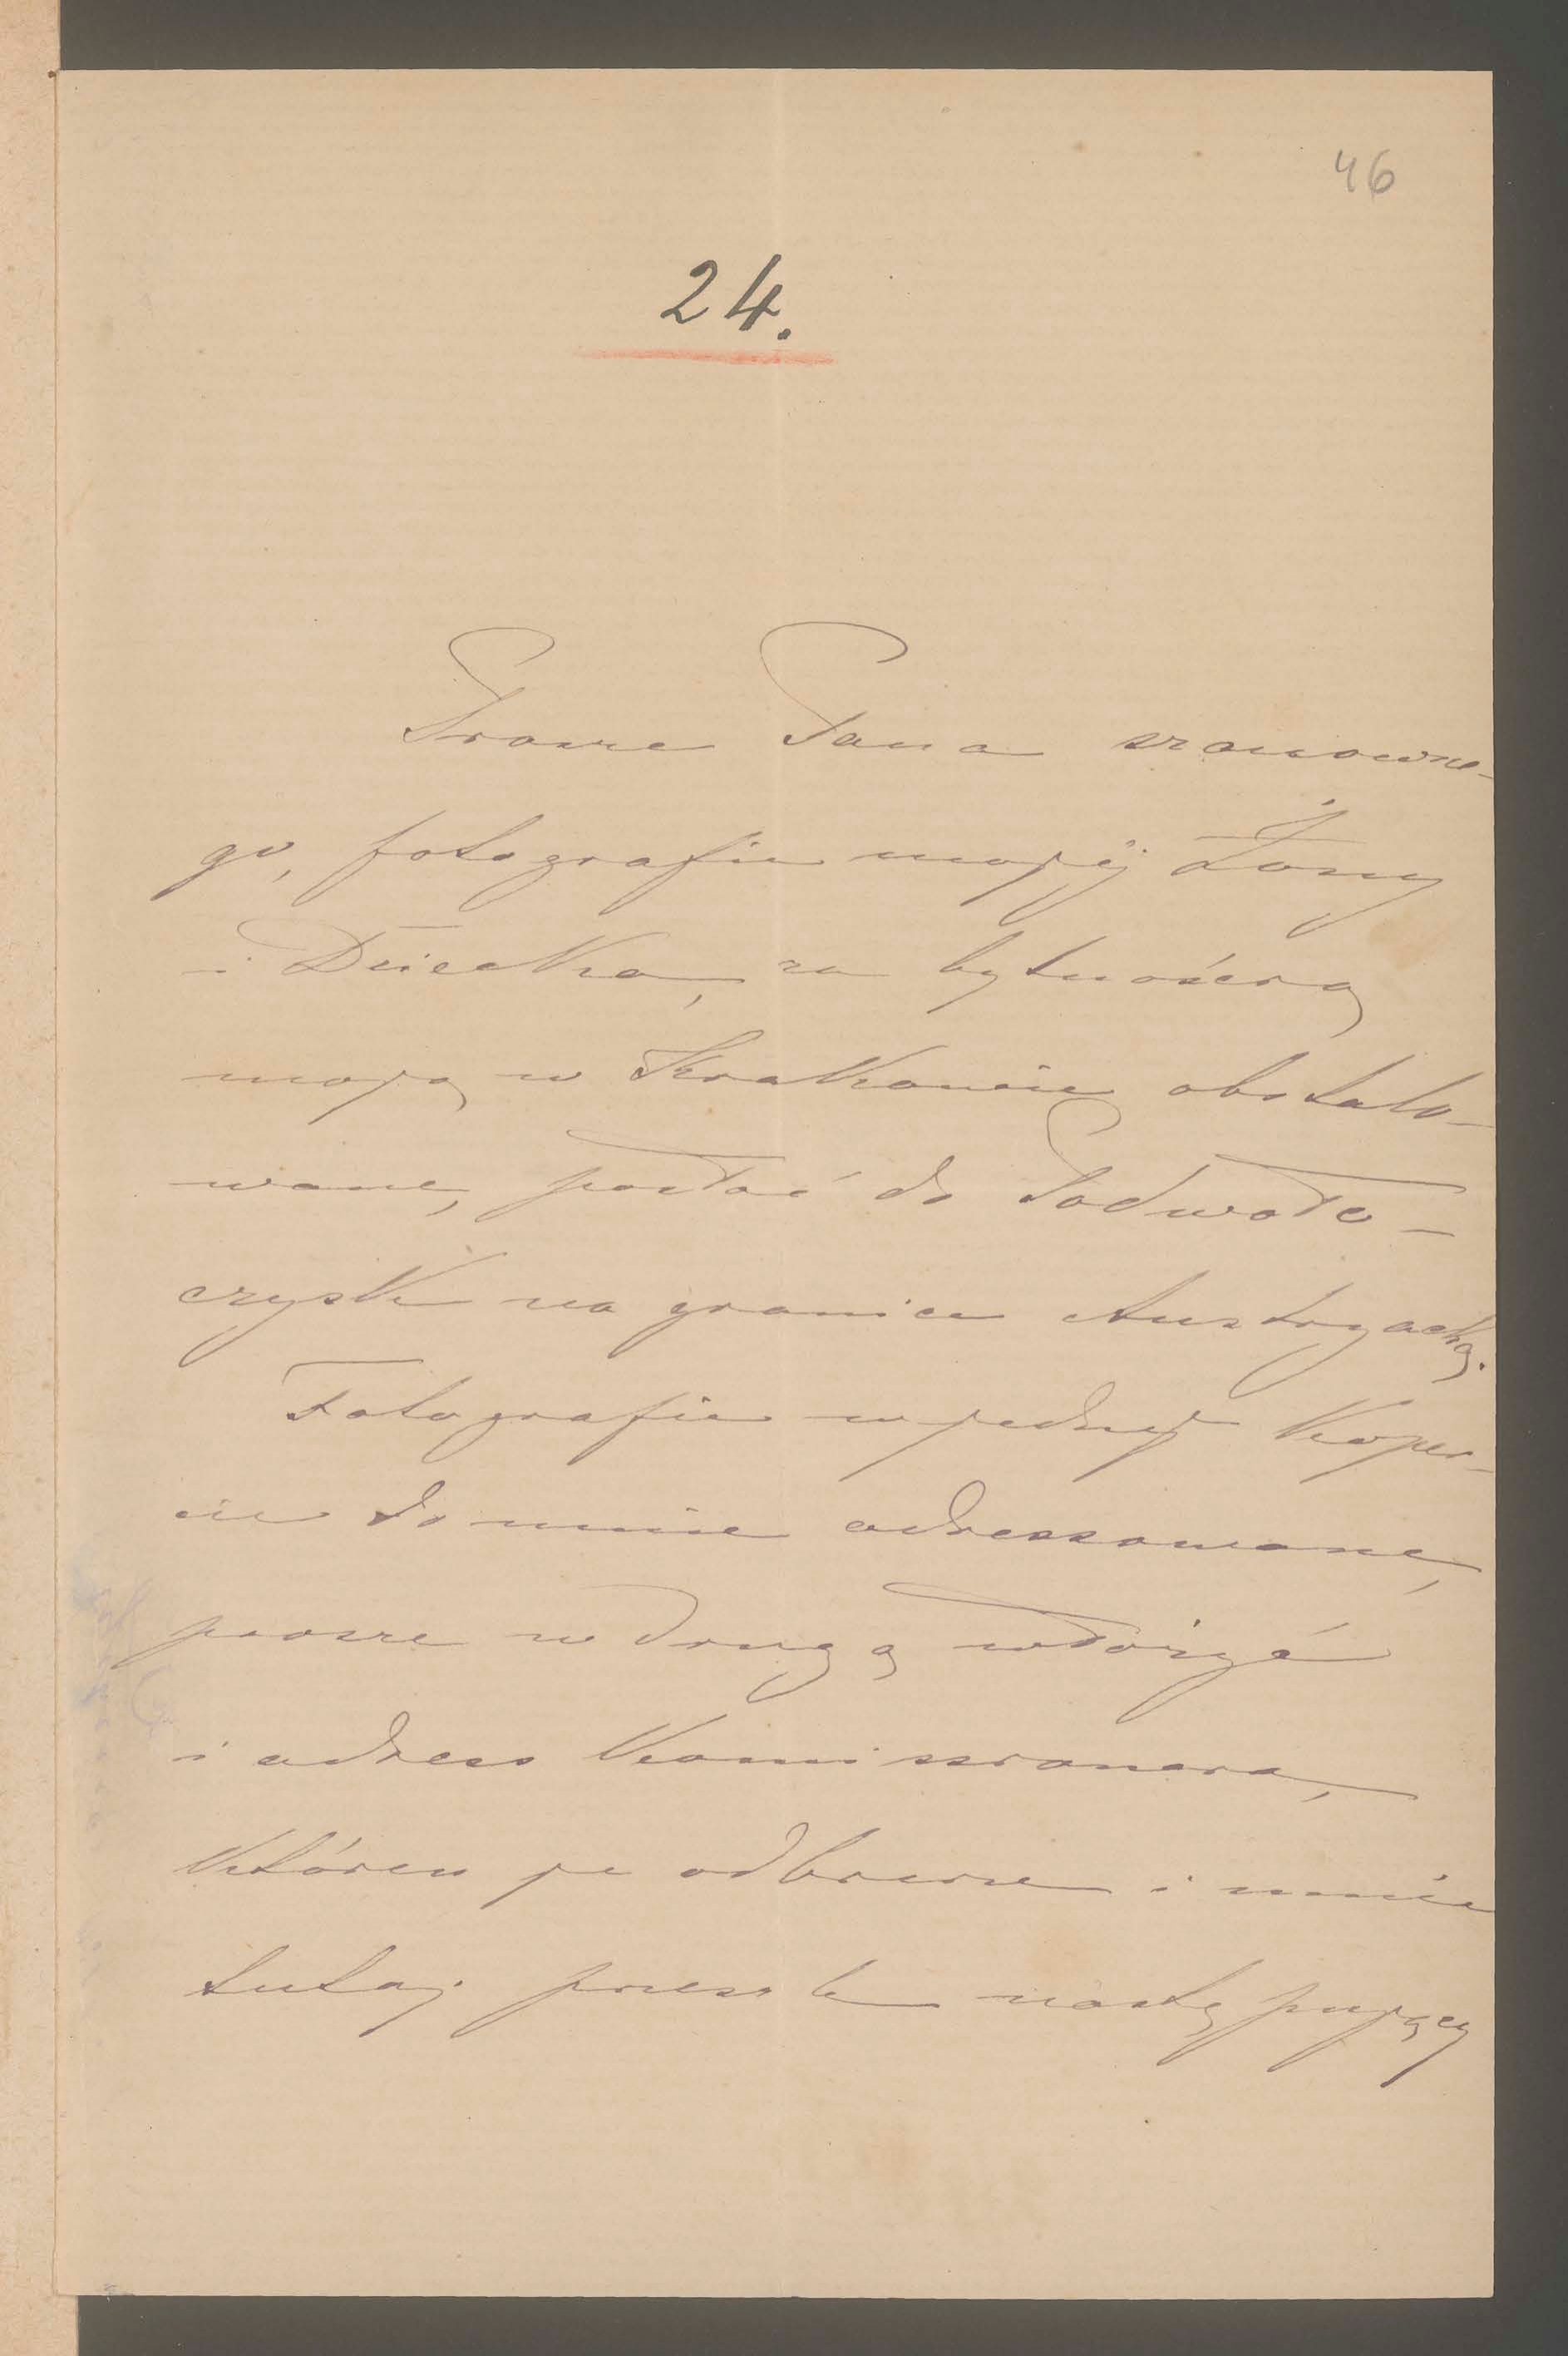 46
24.
Prosze Pana szanowne-
go, fotografie mojéj Żony
i Dziecka, za bytnością
moją w Krakowie obstalo-
wane, posłać do Podwoło-
czysk na granice Austryacką.
Fotografie w jednej koper-
cie do mnie adressowane,
prosze w drugą włożyć
i adress Komissionera,
któren je odbierze i mnie
tutaj przesle następujący